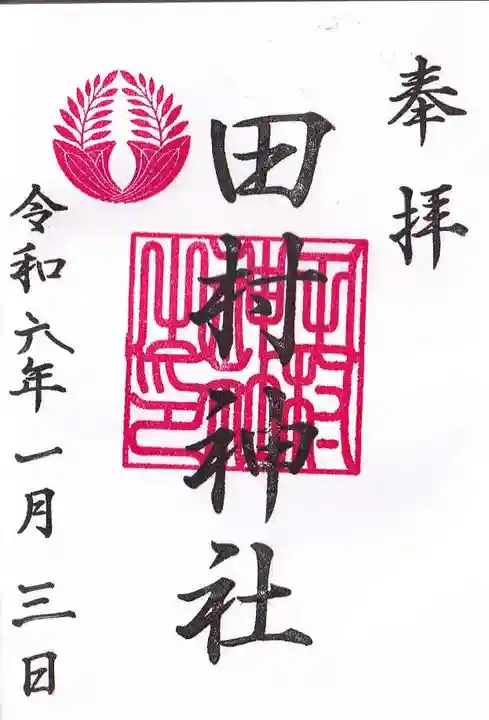 奉拝
田村神社
令和六年一月三日